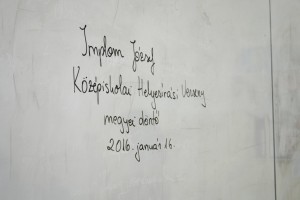 Implom József
Középiskolai Helyesírási Verseny
megyei döntő
2016. január 16.